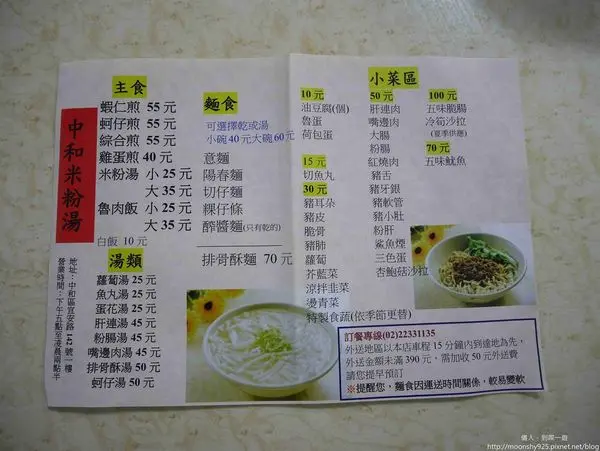 中和米粉湯
地址:中和區宜安路142號一樓
營業時間:下午五點至凌晨兩點半
主食
蝦仁煎 55 元
蚵仔煎 55 元
綜合煎 55 元
雞蛋煎 40 元
米粉湯 小 25 元
大 35 元
魯肉飯 小 25 元
大 35 元
白飯 10 元
湯類
蘿蔔湯 25 元
魚丸湯 25 元
蛋花湯 25 元
肝連湯 45 元
粉腸湯 45 元
嘴邊肉湯 45 元
排骨酥湯 50 元
蚵仔湯 50 元
麵食
可選擇乾或湯
小碗 40 元大碗 60 元
意麵
陽春麵
切仔麵
粿仔條
醡醬麵(只有乾的)
排骨酥麵 70 元
小菜區
10 元
油豆腐(個)
魯蛋
荷包蛋
15 元
切魚丸
30 元
豬耳朵
豬皮
脆骨
豬肺
蘿蔔
芥藍菜
涼拌韭菜
燙青菜
特製食蔬(依季節更替)
50 元
肝連肉
嘴邊肉
大腸
粉腸
紅燒肉
豬舌
豬牙銀
豬軟管
豬小肚
粉肝
鯊魚煙
三色蛋
杏鮑菇沙拉
100 元
五味脆腸
冷筍沙拉
(夏季供應)
70 元
五味魷魚
訂餐專線(02)22331135
外送地區以本店車程 15 分鐘內到達地為先,
外送金額未滿 390 元,需加收 50 元外送費
請您提早預訂
※提醒您,麵食因運送時間關係,較易變軟
儷人‧到熙一遊
http://moonshy925.pixnet.net/blog